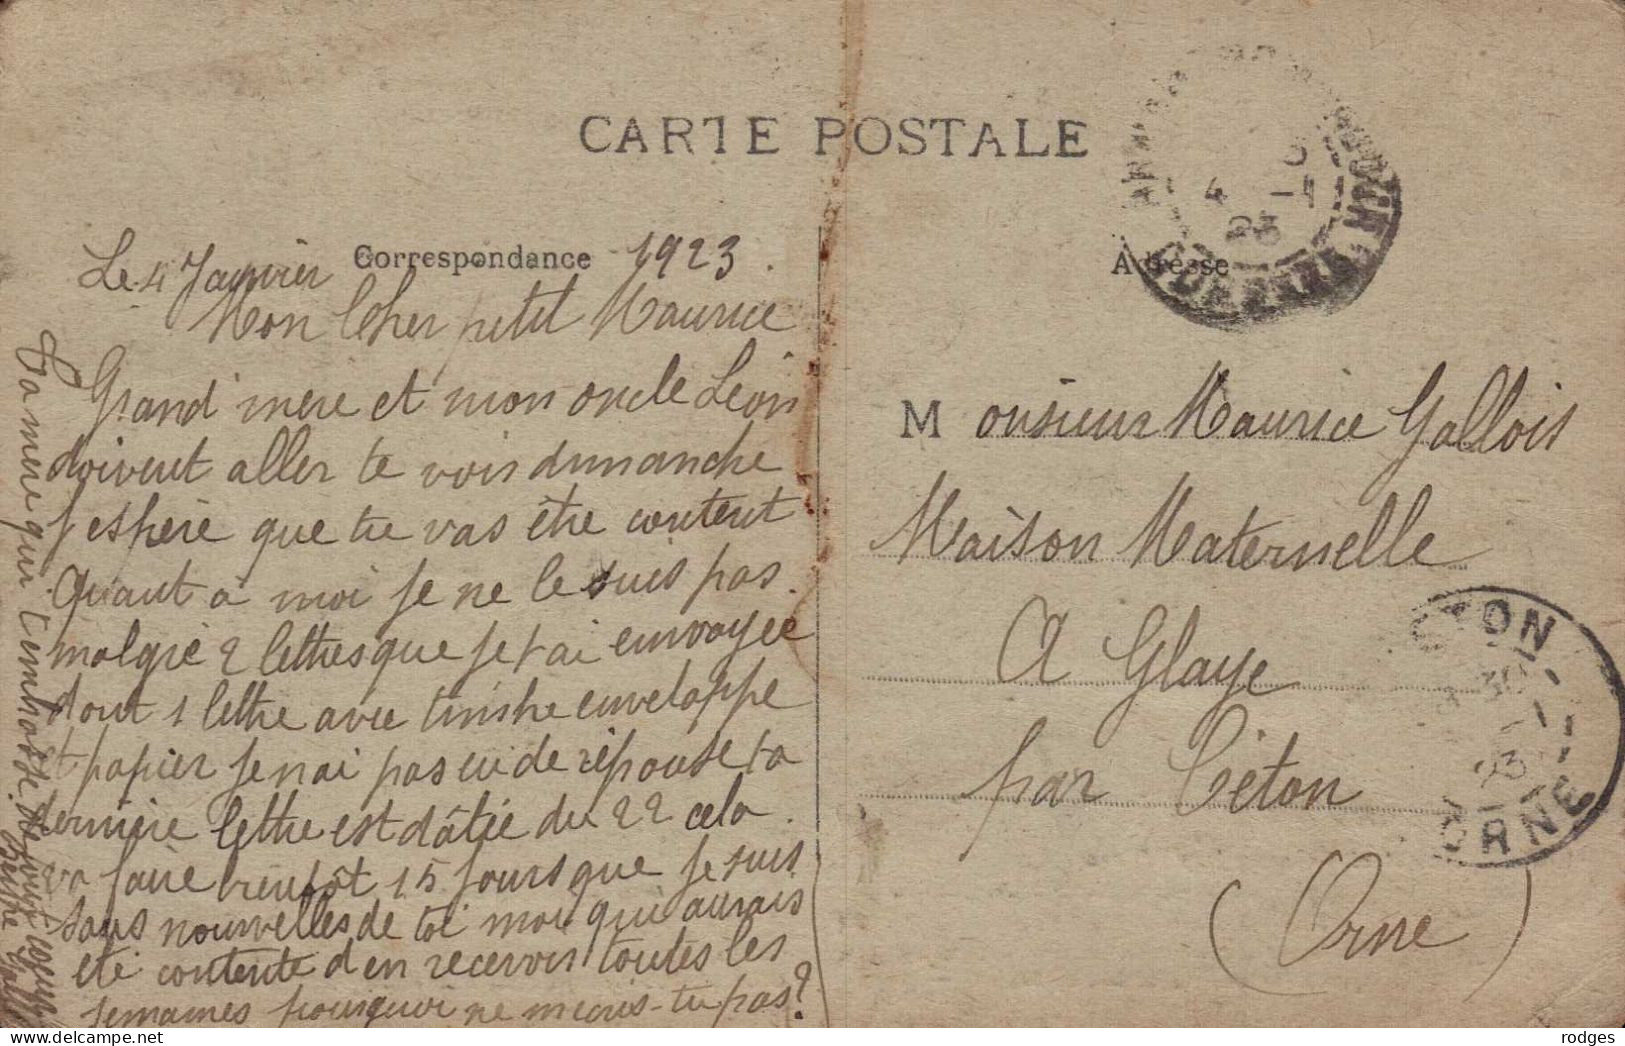 CARTE POSTALE
Correspondance
Adresse
Le 4 Janvier 1923.
Mon Cher petit Maurice
Grand mere et mon oncle Léon
doivent aller te voir dimanche
J espère que tu vas être content
Quant a moi Je ne le suis pas.
malgré 2 lettres que Je t ai envoyée
dont 1 lettre avec timbre enveloppe
et papier Je nai pas eu de réponse ta
dernière lettre est dâtée du 22 cela.
va faire bientôt 15 Jours que Je suis
sans nouvelles de toi moi qui aurais
été contente d en recevoir toutes les
semaines pourquoi ne mecris-tu pas?
Ta mere qui t embrasse de tout coeur
M onsieur Maurice Gallois
Maison Maternelle
A Glaye
par Céton
(Orne)
4 -1
23
CETON
23
ORNE
rodges